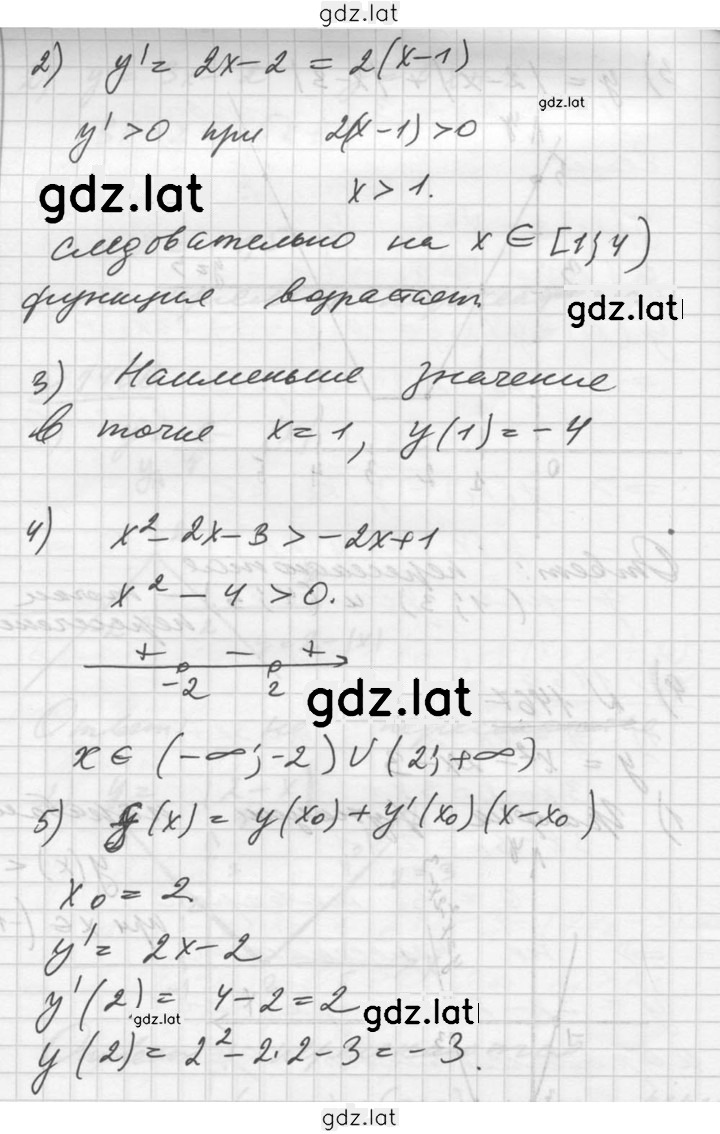 gdz.lat
2) y' = 2x - 2 = 2(x-1)
gdz.lat
y' > 0 при 2(x-1) > 0
gdz.lat
x > 1.
следовательно на x ∈ [1; 4)
функция возрастает.
gdz.lat
3) Наименьше значение
в точке x = 1, y(1) = -4
4) x² - 2x - 3 > -2x + 1
x² - 4 > 0.
+ - +
-2 2
gdz.lat
x ∈ (-∞; -2) ∪ (2; +∞)
5) f(x) = y(x₀) + y'(x₀)(x-x₀)
x₀ = 2
y' = 2x - 2
y'(2) = 4 - 2 = 2
gdz.lat
gdz.lat
y(2) = 2² - 2·2 - 3 = -3.
gdz.lat